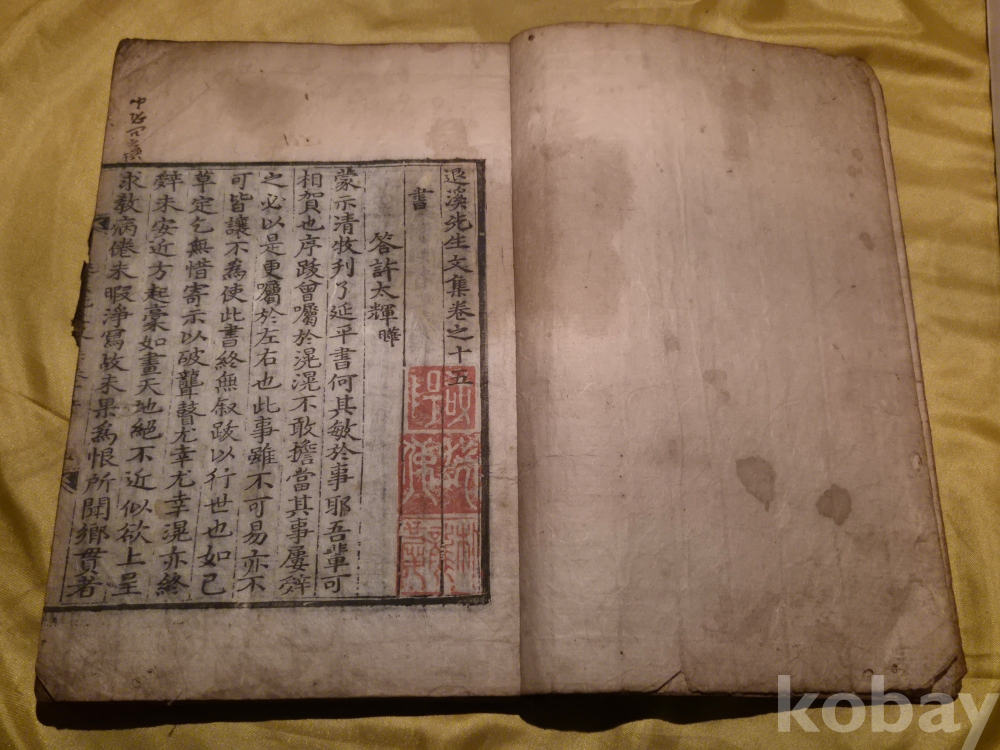 退溪先生文集卷之十五
書
答許太輝曄
蒙示清牧刊了延平書何其敏於事耶吾輩可
相賀也序跋曾囑於滉滉不敢擔當其事屢辤
之必以是更囑於左右也此事雖不可易亦不
可皆讓不爲使此書終無叙跋以行世也如已
草定乞無惜寄示以破聾瞽尤幸尤幸滉亦終
辤未安近方起藁如畫天地絕不近似欲上呈
求教病倦未暇淨寫故未果爲恨所聞鄉貫著
kobay